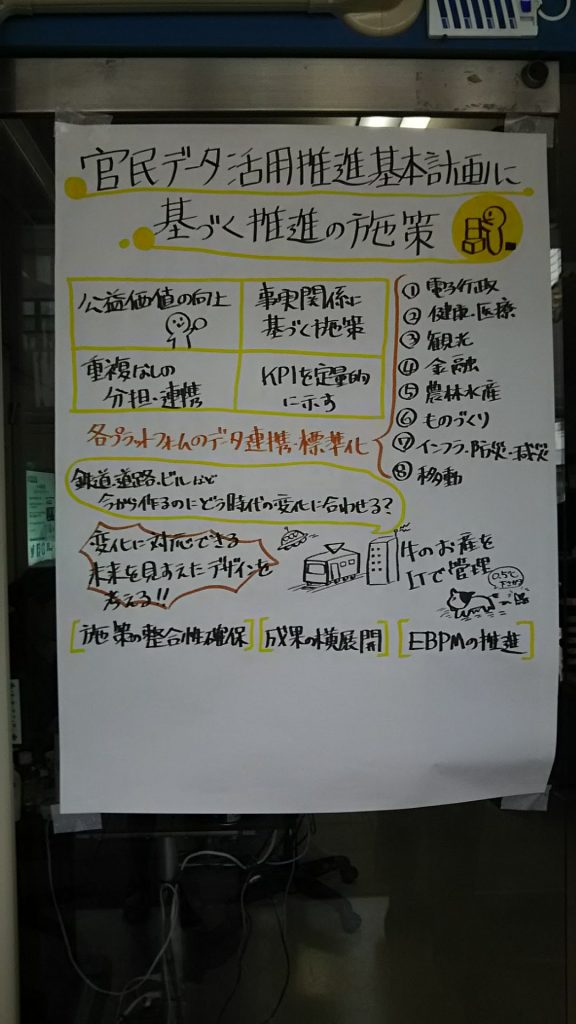 官民データ活用推進基本計画に
基づく推進の施策
公益価値の向上
事実関係に
基づく施策
重複なしの
分担・連携
KPIを定量的
に示す
① 電子行政
② 健康・医療
③ 観光
④ 金融
⑤ 農林水産
⑥ ものづくり
⑦ インフラ・防災・減災
⑧ 移動
各プラットフォームのデータ連携・標準化
鉄道・道路・ビルなど
今から作るのにどう時代の変化に合わせる?
変化に対応できる
未来を見すえたデザインを
考える!!
牛のお産を
ITで管理
0.5℃
下さがる
[施策の整合性確保]
[成果の横展開]
[EBPMの推進]